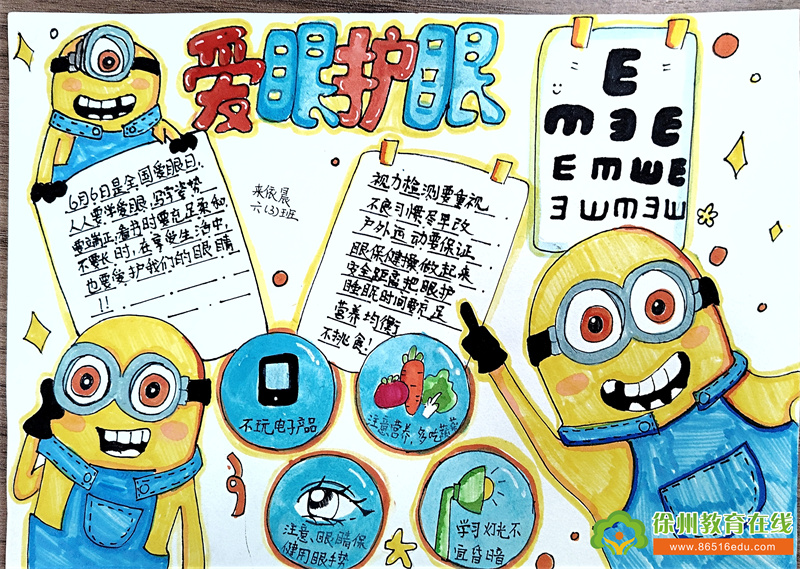 爱眼护眼
E
m ᴲ E
E m w E
ᴲ w m ᴲ w
6月6日是全国爱眼日,
人人要学爱眼,写字姿势
要端正,看书时要充足柔和
不要长时,在享受生活中,
也要爱护我们的眼睛
!!
来依晨
六(3)班
视力检测要重视
不良习惯尽早改
户外运动要保证
眼保健操做起来
安全距离把眼护
睡眠时间要充足
营养均衡
不挑食!
不玩电子产品
注意营养,多吃蔬菜
注意、眼睛保
健用眼手势
学习灯光不
宜昏暗
徐州教育在线
www.86516edu.com